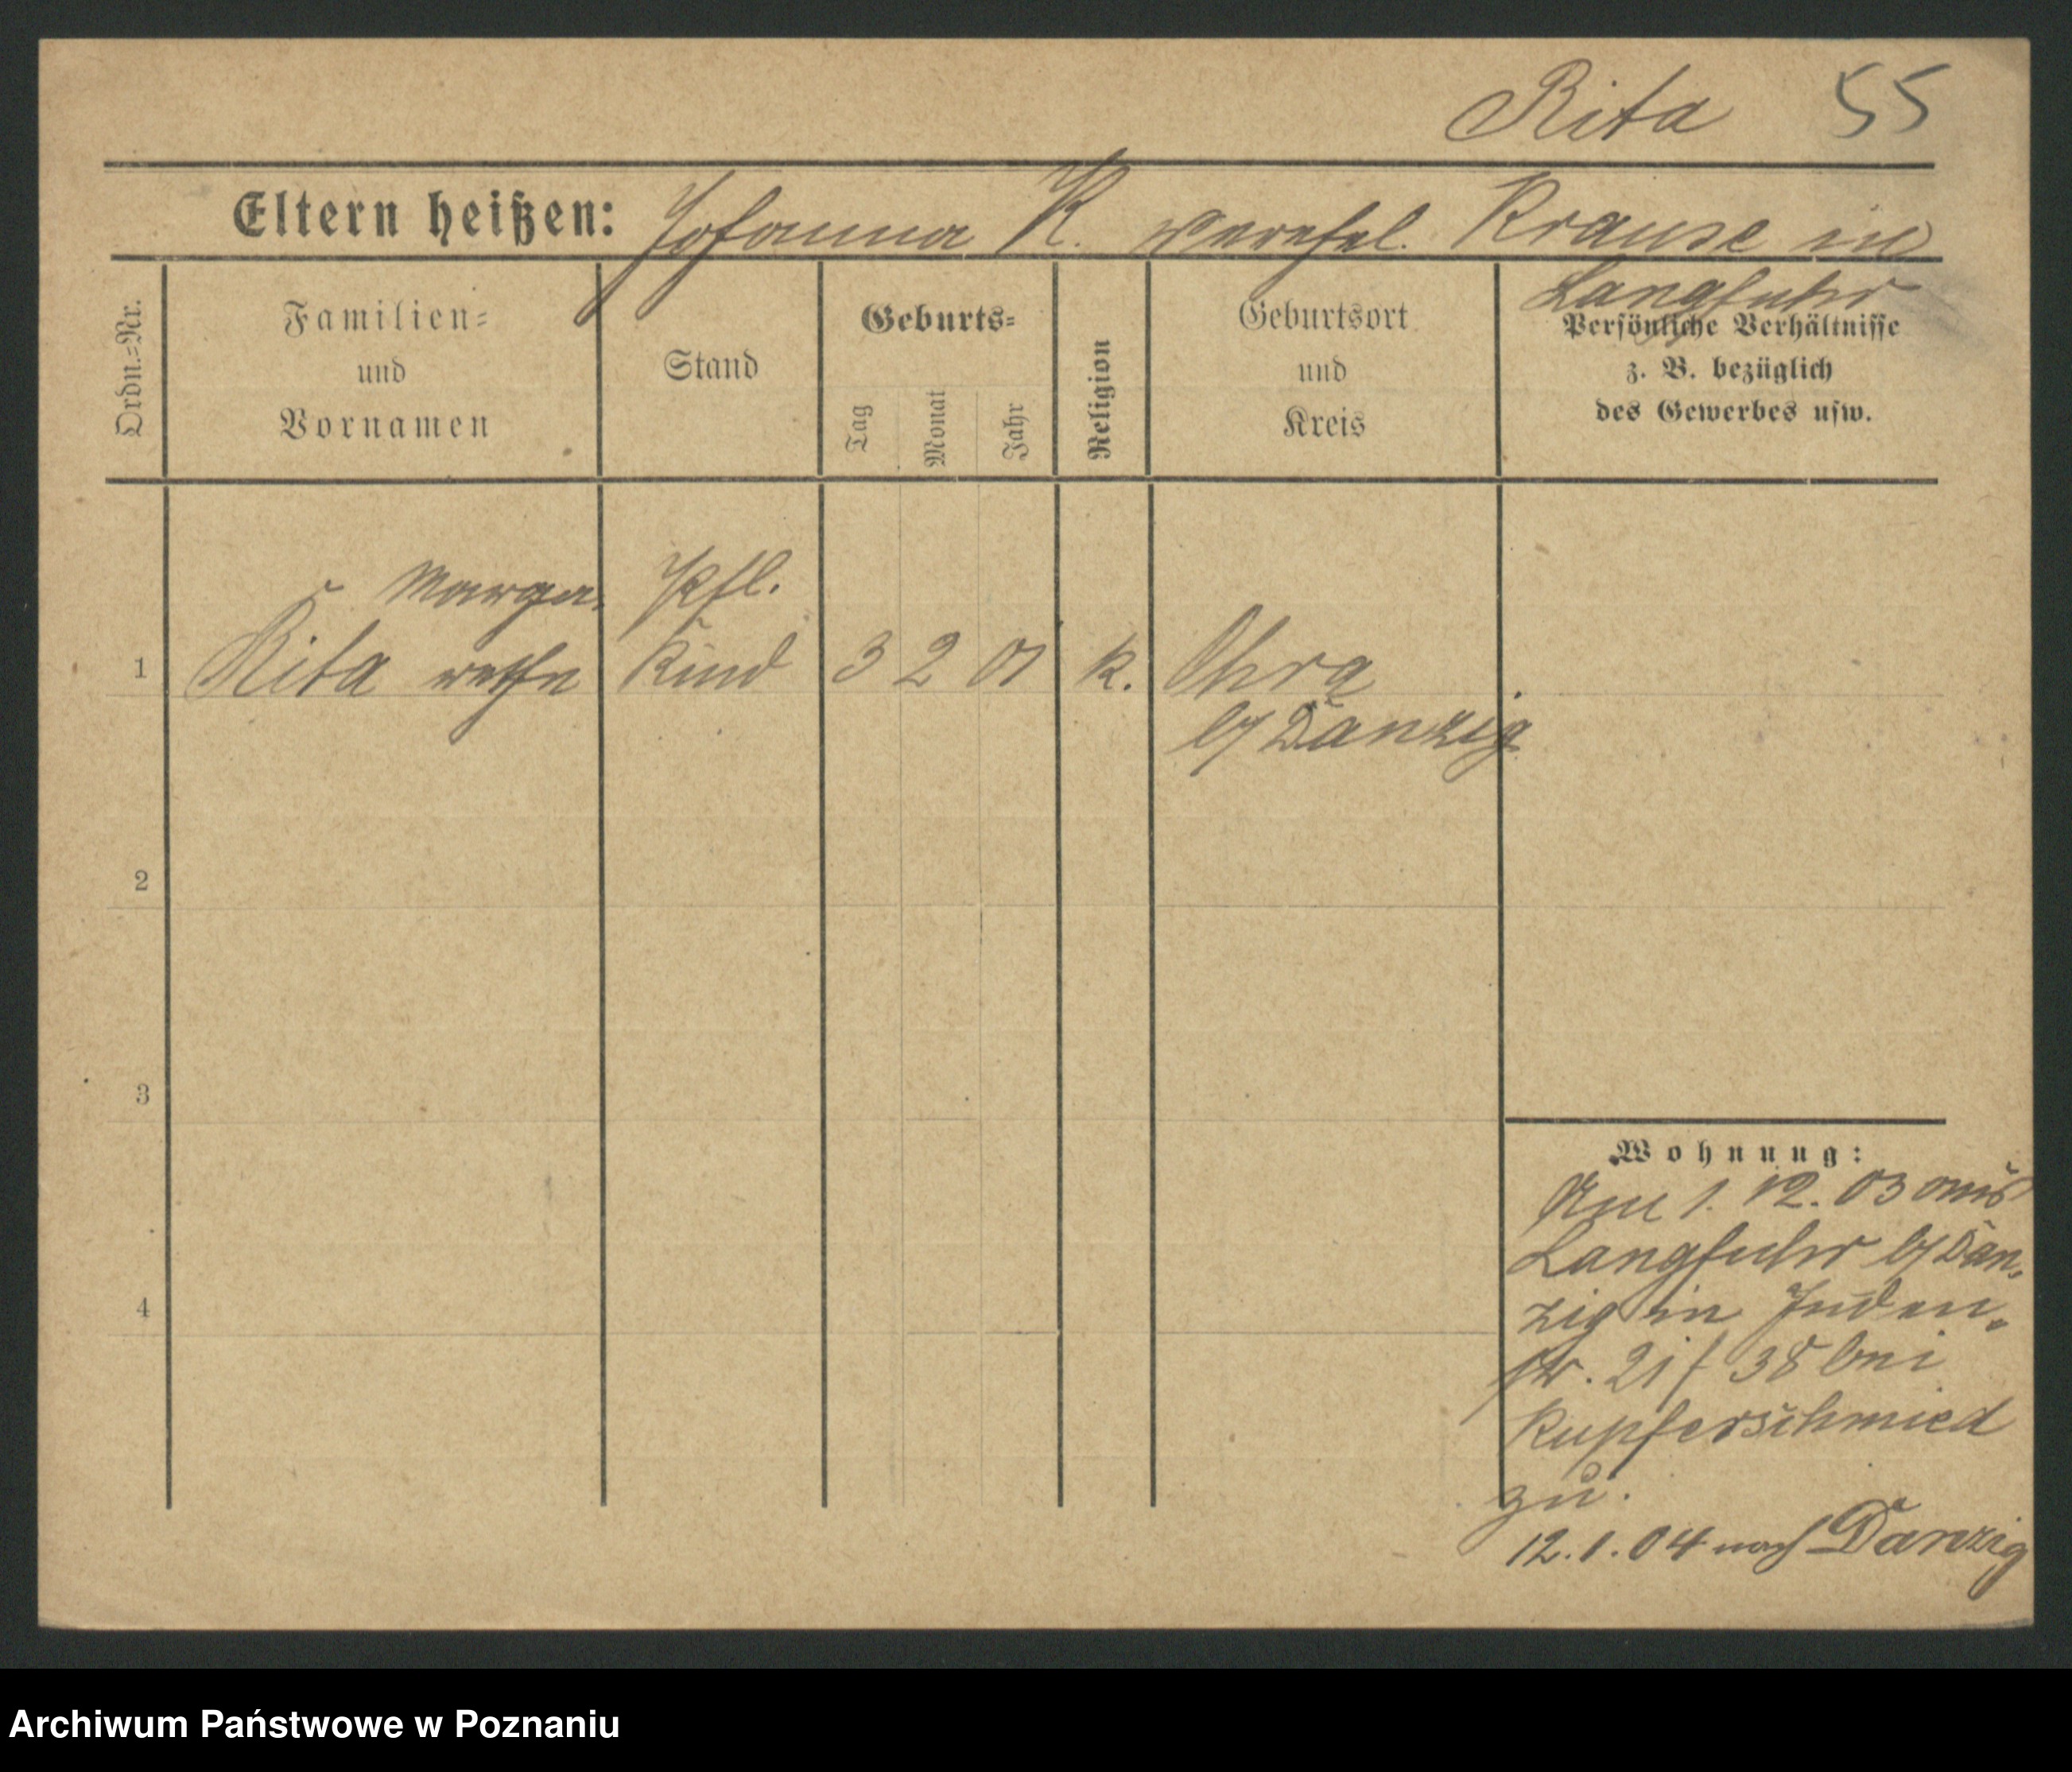 Rita 55
Eltern heißen: Johanna R. verehel. Krause in
Langfuhr
Ordn.=Nr.
Familien=
und
Vornamen
Stand
Geburts=
Tag
Monat
Jahr
Religion
Geburtsort
und
Kreis
Persönliche Verhältnisse
z. B. bezüglich
des Gewerbes usw.
Marga- Pfl.
1 Rita rethe Kind 3 2 01 k. Ohra
b/ Danzig
2
3
4
Wohnung:
Am 1. 12. 03 aus
Langfuhr b/ Dan-
zig in Juden-
str. 21 / 38 bei
Kupferschmied
zu.
12. 1. 04 nach Danzig
Archiwum Państwowe w Poznaniu